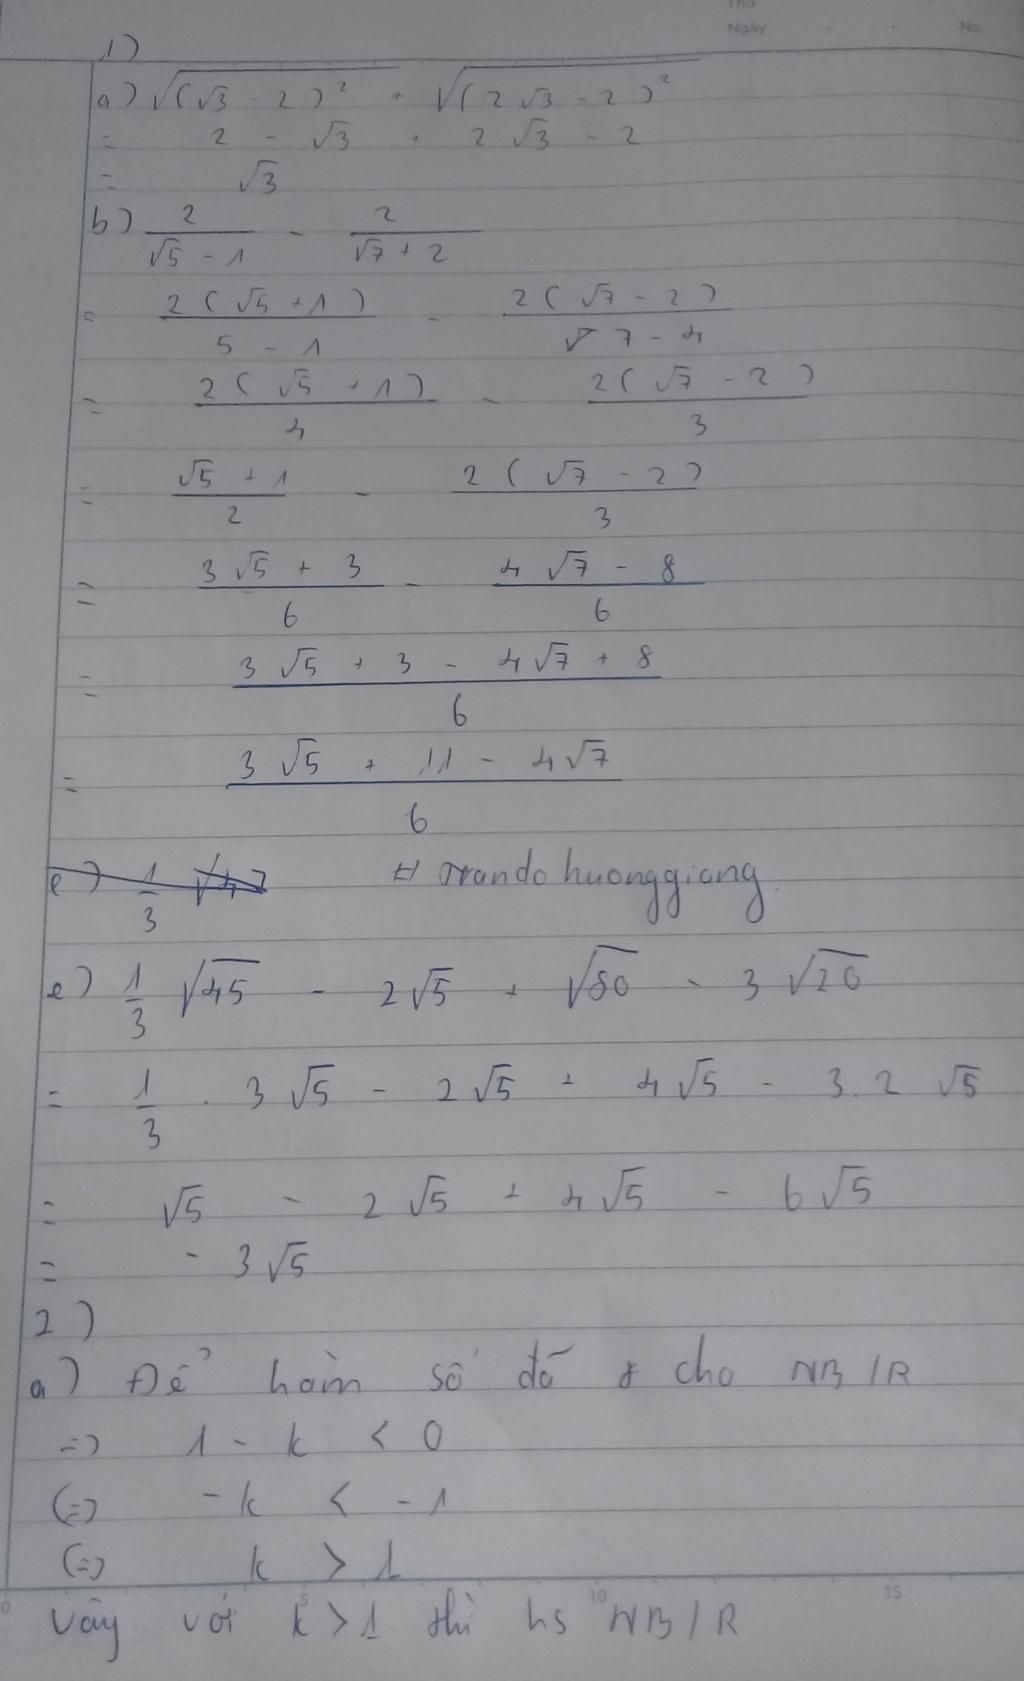 Thứ
Ngày . . No.
1)
a) √(√3 - 2)² + √(2√3 - 2)²
= 2 - √3 + 2√3 - 2
= √3
b) 2/(√5 - 1) - 2/(√7 + 2)
= 2(√5 + 1)/(5 - 1) - 2(√7 - 2)/(7 - 4)
= 2(√5 + 1)/4 - 2(√7 - 2)/3
= (√5 + 1)/2 - 2(√7 - 2)/3
= (3√5 + 3)/6 - (4√7 - 8)/6
= (3√5 + 3 - 4√7 + 8)/6
= (3√5 + 11 - 4√7)/6
trandohuonggiang
e) 1/3 √45 - 2√5 + √80 - 3√20
= 1/3 . 3√5 - 2√5 + 4√5 - 3.2√5
= √5 - 2√5 + 4√5 - 6√5
= -3√5
2)
a) Để hàm số đã cho NB/R
=> 1 - k < 0
(=) -k < -1
(=) k > 1
0 5 10 15
Vậy với k > 1 thì hs NB/R